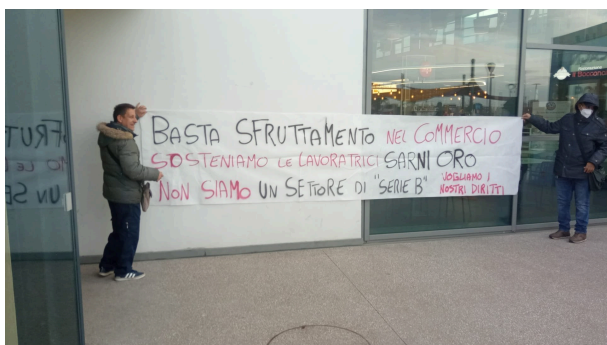 BASTA SFRUTTAMENTO NEL COMMERCIO
SOSTENIAMO LE LAVORATRICI SARNI ORO
NON SIAMO UN SETTORE DI "SERIE B" VOGLIAMO I
NOSTRI DIRITTI